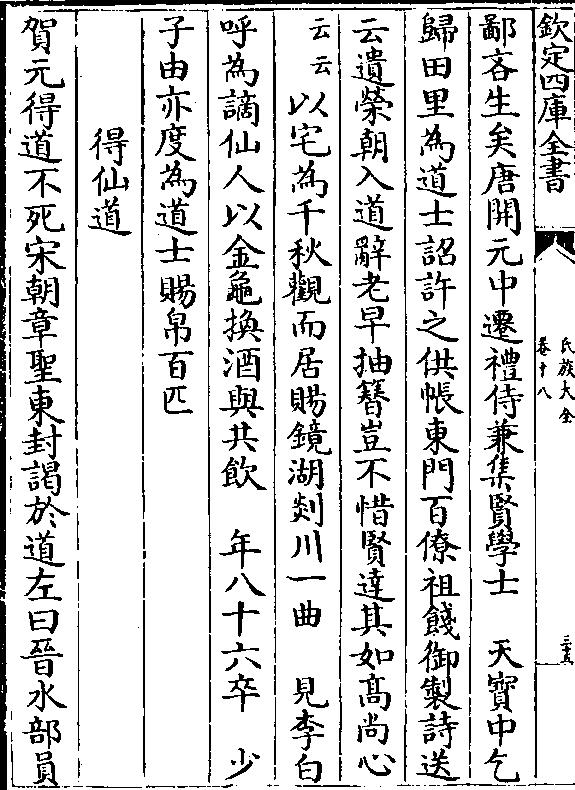 欽定四庫全書
氏族大全
卷十八
三十五
鄙吝生矣唐開元中遷禮侍兼集賢學士　天寶中乞
歸田里為道士詔許之供帳東門百僚祖餞御製詩送
云遺榮朝入道辭老早抽簪豈不惜賢達其如髙尚心
云云以宅為千秋觀而居賜鏡湖剡川一曲　見李白
呼為謫仙人以金龜換酒與共飲　年八十六卒　少
子由亦度為道士賜帛百匹
得仙道
賀元得道不死宋朝章聖東封謁於道左曰晉水部員